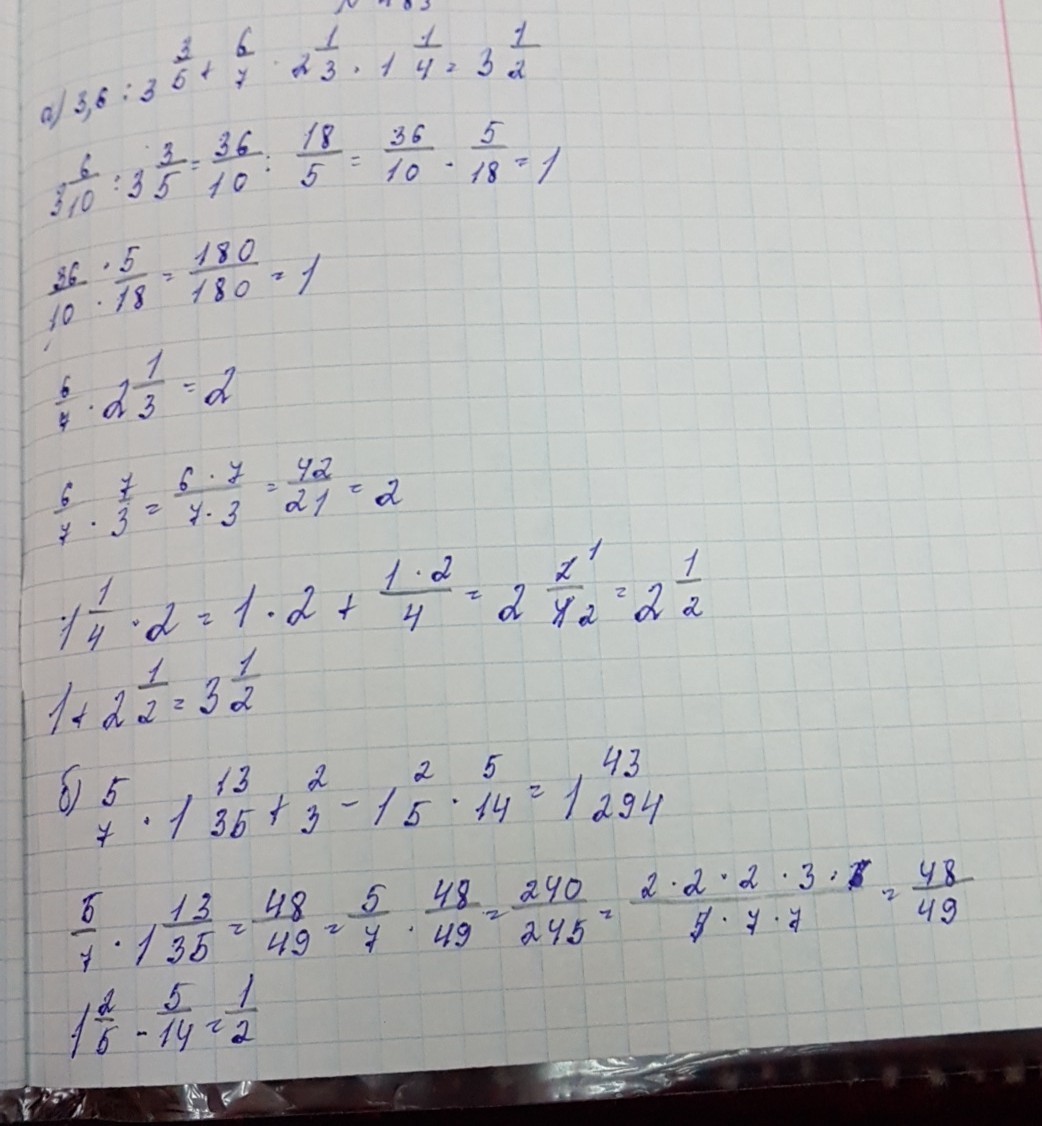 а) 3,6 : 3 3/5 + 6/7 · 2 1/3 · 1 1/4 = 3 1/2
3 6/10 : 3 3/5 = 36/10 : 18/5 = 36/10 · 5/18 = 1
36/10 · 5/18 = 180/180 = 1
6/7 · 2 1/3 = 2
6/7 · 7/3 = 6 · 7/7 · 3 = 42/21 = 2
1 1/4 · 2 = 1 · 2 + 1 · 2/4 = 2 2 1/4 2 = 2 1/2
1 + 2 1/2 = 3 1/2
б) 5/7 · 1 13/35 + 2/3 - 1 2/5 · 5/14 = 1 43/294
5/7 · 1 13/35 = 48/49 = 5/7 · 48/49 = 240/245 = 2 · 2 · 2 · 3 · /7 · 7 = 48/49
1 2/5 - 5/14 = 1/2